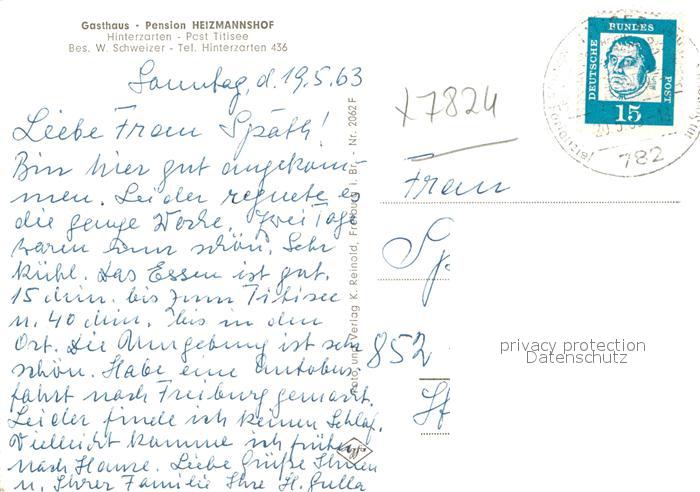 Gasthaus - Pension HEIZMANNSHOF
Hinterzarten - Post Titisee
Bes. W. Schweizer - Tel. Hinterzarten 436
Sonntag, d. 19.5.63
Liebe Frau Späth!
Bin hier gut angekom-
men. Leider regnete es
die ganze Woche. Zwei Tage
waren nur schön. Sehr
kühl. Das Essen ist gut.
15 Min. bis zum Titisee
u. 40 Min. bis in den
Ort. Die Umgebung ist sehr
schön. Habe eine Autobus
fahrt nach Freiburg gemacht.
Leider finde ich keinen Schlaf.
Vielleicht komme ich früher
nach Hause. Liebe Grüße Ihnen
u. Ihrer Familie Ihre H.
Foto und Verlag K. Reinold, Freiburg i. Br. - Nr. 2062 F
x7824
DEUTSCHE
BUNDES
POST
15
782
Frau
Sp
852
privacy protection
Datenschutz